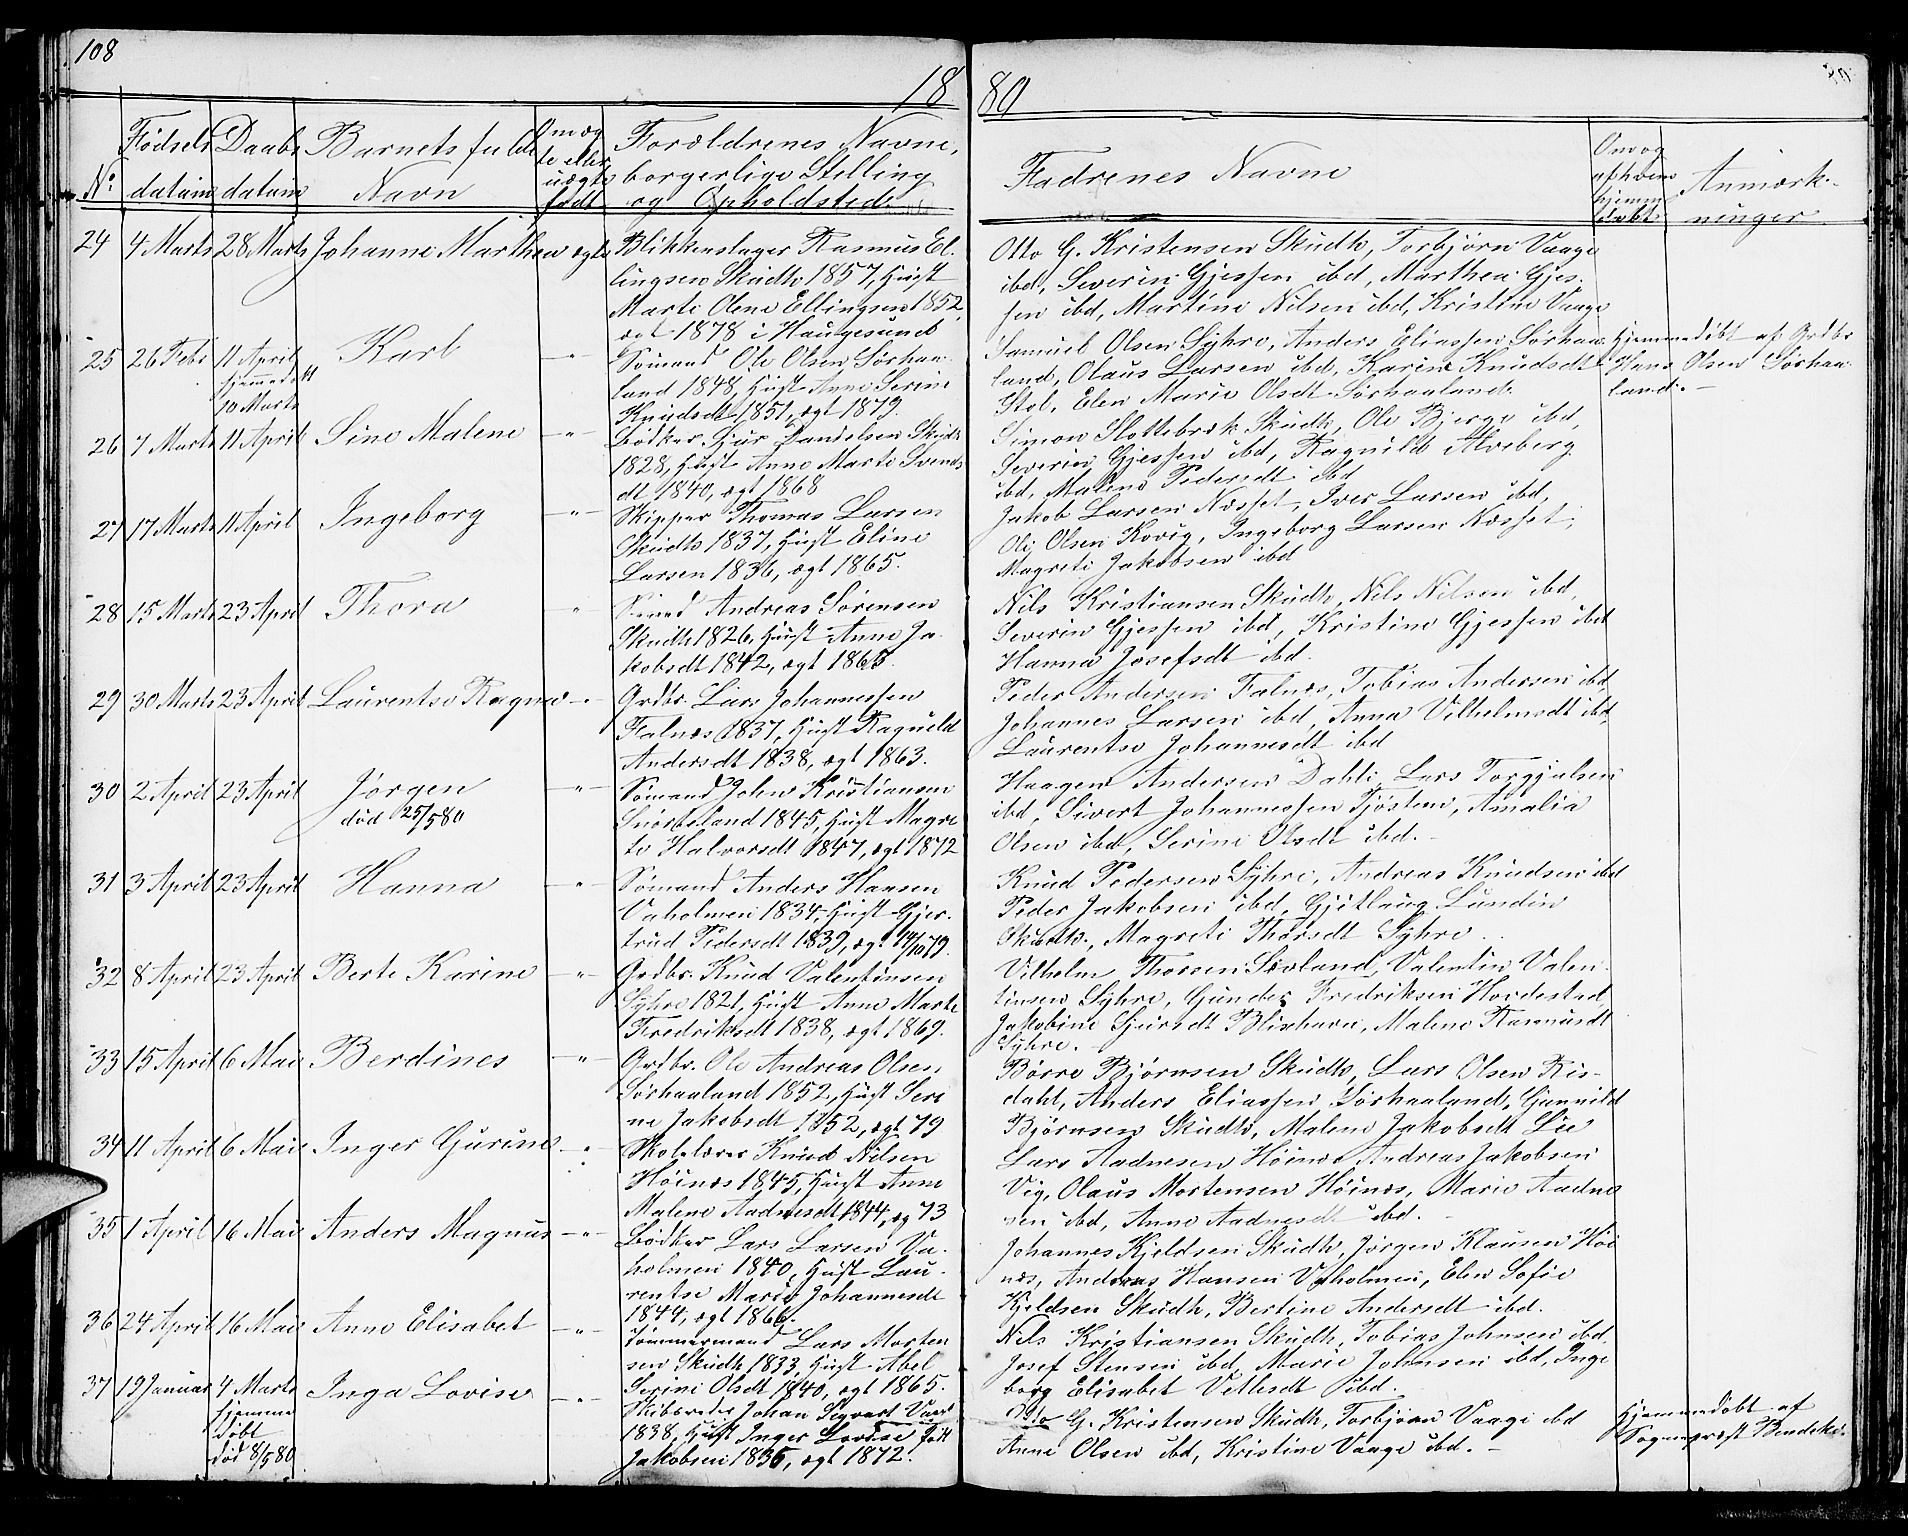 108
18 80
No. Fødsels datum Daabs datum Barnets fulde Navn Om ægte eller uægte født Forældrenes Navne, borgerlige Stilling og Opholdsted Fadrenes Navne Om og af hvem hjemmedøbt Anmærkninger
24 4 Marts 28 Marts Johanne Marthea ægte
Blikkenslager Rasmus El-
lingsen Skudh 1857, Hust
Marte Olene Ellingsen 1852,
ægt 1878 i Haugesund
Otto G. Kristensen Skudh, Torbjørn Vaage
ibd, Severin Gjessen ibd, Marthea Gjes-
sen ibd, Martine Nilsen ibd, Kristine Vaage
25 26 Feb 11 April Karl -"-
hjemmedøbt
10 Marts
Sømand Ole Olsen Sørhaa-
land 1848, Hust Anne Serine
Knudsdt 1851, ægt 1879.
Samuel Olsen Syhre, Anders Eliassen Sørhaa-
land, Olaus Larsen ibd, Karine Knudsdt
Stol, Elen Marie Olsdt Sørhaaland.
Hjemmedøbt af Grdbr
Hans Olsen Sørhaa-
land. -
26 7 Marts 11 April Sine Malene -"-
Bødker Sjur Danielsen Skudh
1828, Hust Anne Marte Svends-
dt 1840, ægt 1868
Simon Slottebræk Skudh, Ole Bjerge ibd,
Severin Gjessen ibd, Ragnild Alveberg
ibd, Malene Pedersdt ibd
27 17 Marts 11 April Ingeborg -"-
Skipper Thomas Larsen
Skudh 1837, Hust Eline
Larsen 1836, ægt 1865.
Jakob Larsen Næsset, Iver Larsen ibd,
Ole Olsen Kovig, Ingeborg Larsen Næsset,
Magrete Jakobsen ibd
28 15 Marts 23 April Thora "
Sømd Andreas Sørensen
Skudh 1826, Hust Anne Ja-
kobsdt 1842, ægt 1865.
Nils Kristiansen Skudh, Nils Nilsen ibd,
Severin Gjessen ibd, Kristine Gjessen ibd
Hanna Josefsdt ibd.
29 30 Marts 23 April Laurentse Ragna -"-
Grdbr. Lars Johannessen
Falnæs 1837, Hust Ragnild
Andersdt 1838, ægt 1863.
Peder Andersen Falnæs, Tobias Andersen ibd,
Johannes Larsen ibd, Anna Vilhelmsdt ibd,
Laurentse Johannesdt ibd
30 2 April 23 April Jørgen -"-
død 25/5 80
Sømand John Kristiansen
Snørteland 1845, Hust Magre-
te Halvorsdt 1847, ægt 1872
Haagen Andersen Dahle, Lars Torgjulsen
ibd, Sivert Johannessen Tjøstem, Amalia
Olsen ibd, Serine Olsdt ibd. -
31 3 April 23 April Hanna -"-
Sømand Anders Hansen
Vaholmen 1834, Hust Gjer-
trud Pedersdt 1839, ægt 14/10 79.
Knud Pedersen Syhre, Andreas Knudsen ibd
Peder Jakobsen ibd, Gjetlaug Lundin
Skudh., Magrete Thorsdt Syhre.
32 8 April 23 April Berte Karine -"-
Grdbr. Knud Valentinsen
Syhre 1821, Hust Anne Marte
Fredriksdt 1838, ægt 1869.
Vilhelm Thorsen Sævland, Valentin Valen-
tinsen Syhre, Gunder Fredriksen Hordestad,
Jakobine Sjursdt Blixhavn, Malene Rasmusdt
Syhre.
33 15 April 6 Mai Berdines -"-
Grdbr. Ole Andreas Olsen
Sørhaaland 1852, Hust Seri-
ne Jakobsdt 1852, ægt 79
Børre Bjørnsen Skudh, Lars Olsen Ris-
dahl, Anders Eliassen Sørhaaland, Gunnild
Bjørnsen Skudh, Malene Jakobsdt Lie
34 11 April 6 Mai Inger Gurine -"-
Skolelærer Knud Nilsen
Høinæs 1845, Hust Anne
Malene Aadnesdt 1844, æg 73
Lars Aadnesen Høinæs Andreas Jakobsen
Vig, Olaus Mortensen Høinæs, Marie Aadne-
sen ibd, Anne Aadnesdt ibd. -
35 1 April 16 Mai Anders Magnus -"-
Bødker Lars Larsen Va-
holmen 1840, Hust Lau-
rentse Marie Johannesdt
1844, ægt 1866.
Johannes Kjeldsen Skudh, Jørgen Klausen Høi-
næs, Andreas Hansen Vaholmen, Elen Sofie
Kjeldsen Skudh, Bertine Andersdt ibd.
36 24 April 16 Mai Anne Elisabet -"-
Tømmermand Lars Morten-
sen Skudh 1833, Hust Abel
Serine Olsdt 1840, ægt 1865.
Nils Kristiansen Skudh, Tobias Johnsen ibd,
Josef Stensen ibd, Marie Johnsen ibd, Inge-
borg Elisabet Vetlesdt ibd.
37 19 Januar 4 Marts Inga Lovise -"-
hjemme
døbt
død 8/5 80
Skibsreder Johan Sigvart Vaage
1838, Hust Inger Lovise født
Jakobsen 1835, ægt 1872.
Otto G. Kristensen Skudh, Torbjørn Vaage ibd
Anne Olsen ibd, Kristine Vaage ibd. -
Hjemmedøbt af
Sogneprest Bendeke.